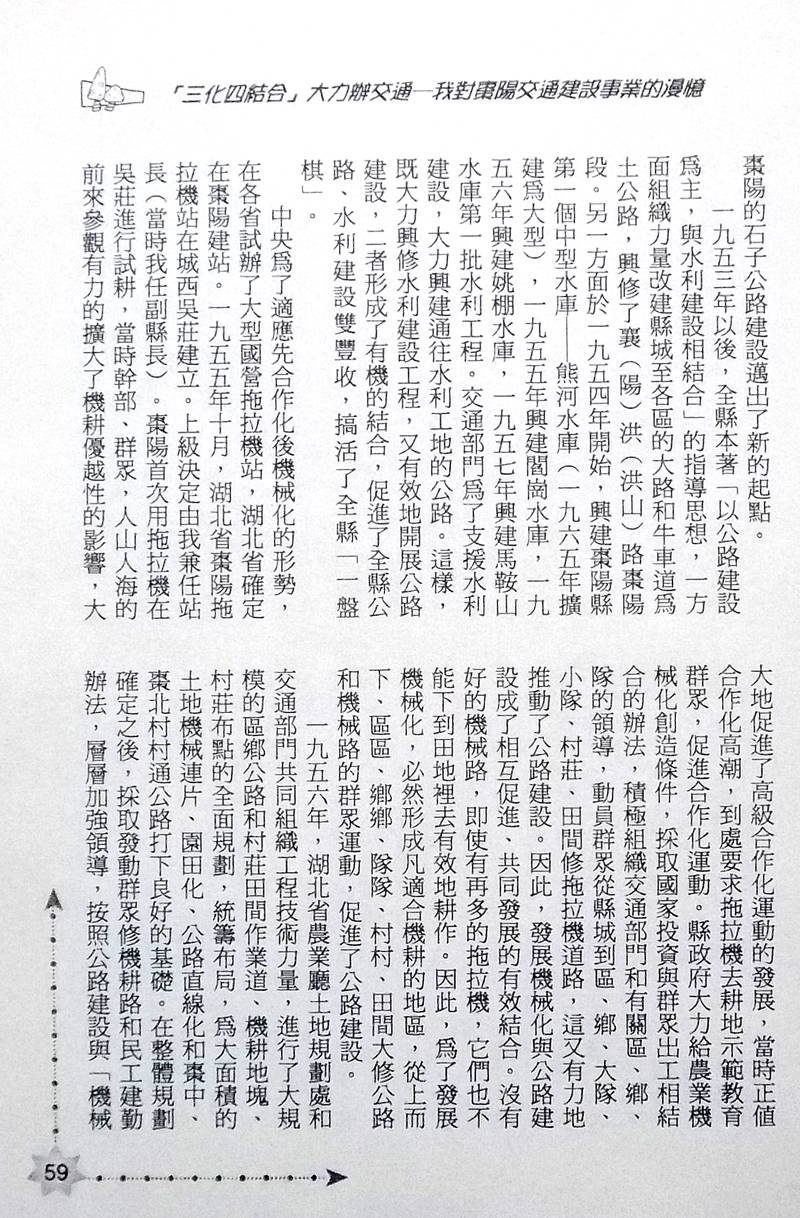 「三化四結合」大力辦交通—我對棗陽交通建設事業的漫憶
棗陽的石子公路建設邁出了新的起點。
一九五三年以後，全縣本著「以公路建設
爲主，與水利建設相結合」的指導思想，一方
面組織力量改建縣城至各區的大路和牛車道爲
土公路，興修了襄（陽）洪（洪山）路棗陽
段。另一方面於一九五四年開始，興建棗陽縣
第一個中型水庫——熊河水庫（一九六五年擴
建爲大型），一九五五年興建閻崗水庫，一九
五六年興建姚棚水庫，一九五七年興建馬鞍山
水庫第一批水利工程。交通部門爲了支援水利
建設，大力興建通往水利工地的公路。這樣，
既大力興修水利建設工程，又有效地開展公路
建設，二者形成了有機的結合，促進了全縣公
路、水利建設雙豐收，搞活了全縣「一盤
棋」。
中央爲了適應先合作化後機械化的形勢，
在各省試辦了大型國營拖拉機站，湖北省確定
在棗陽建站。一九五五年十月，湖北省棗陽拖
拉機站在城西吳莊建立。上級決定由我兼任站
長（當時我任副縣長）。棗陽首次用拖拉機在
吳莊進行試耕，當時幹部、群眾，人山人海的
前來參觀有力的擴大了機耕優越性的影響，大
大地促進了高級合作化運動的發展，當時正值
合作化高潮，到處要求拖拉機去耕地示範教育
群眾，促進合作化運動。縣政府大力給農業機
械化創造條件，採取國家投資與群眾出工相結
合的辦法，積極組織交通部門和有關區、鄉、
隊的領導，動員群眾從縣城到區、鄉、大隊、
小隊、村莊、田間修拖拉機道路，這又有力地
推動了公路建設。因此，發展機械化與公路建
設成了相互促進、共同發展的有效結合。沒有
好的機械路，即使有再多的拖拉機，它們也不
能下到田地裡去有效地耕作。因此，爲了發展
機械化，必然形成凡適合機耕的地區，從上而
下、區區、鄉鄉、隊隊、村村、田間大修公路
和機械路的群眾運動，促進了公路建設。
一九五六年，湖北省農業廳土地規劃處和
交通部門共同組織工程技術力量，進行了大規
模的區鄉公路和村莊田間作業道、機耕地塊、
村莊布點的全面規劃，統籌布局，爲大面積的
土地機械連片、園田化、公路直線化和棗中、
棗北村村通公路打下良好的基礎。在整體規劃
確定之後，採取發動群眾修機耕路和民工建勤
辦法，層層加強領導，按照公路建設與「機械
59